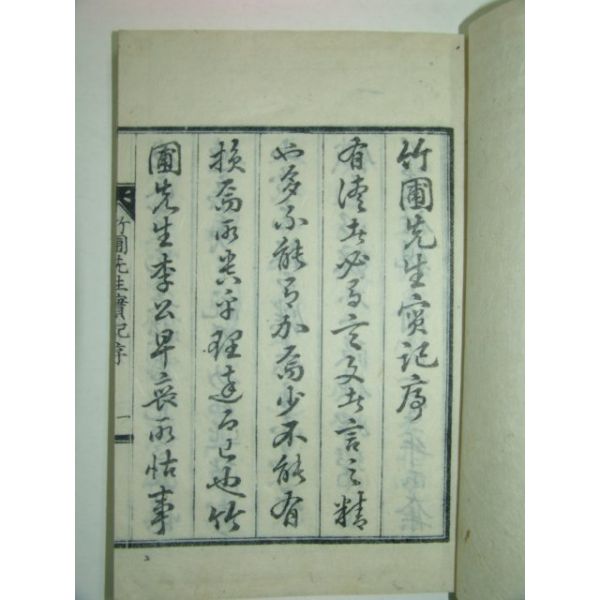 竹圃先生實記序
有德者必有言文者言之精
也多不能有加焉少不能有
損焉所貴乎理達而已也竹
圃先生李公早喪所怙事
竹圃先生實記序
一